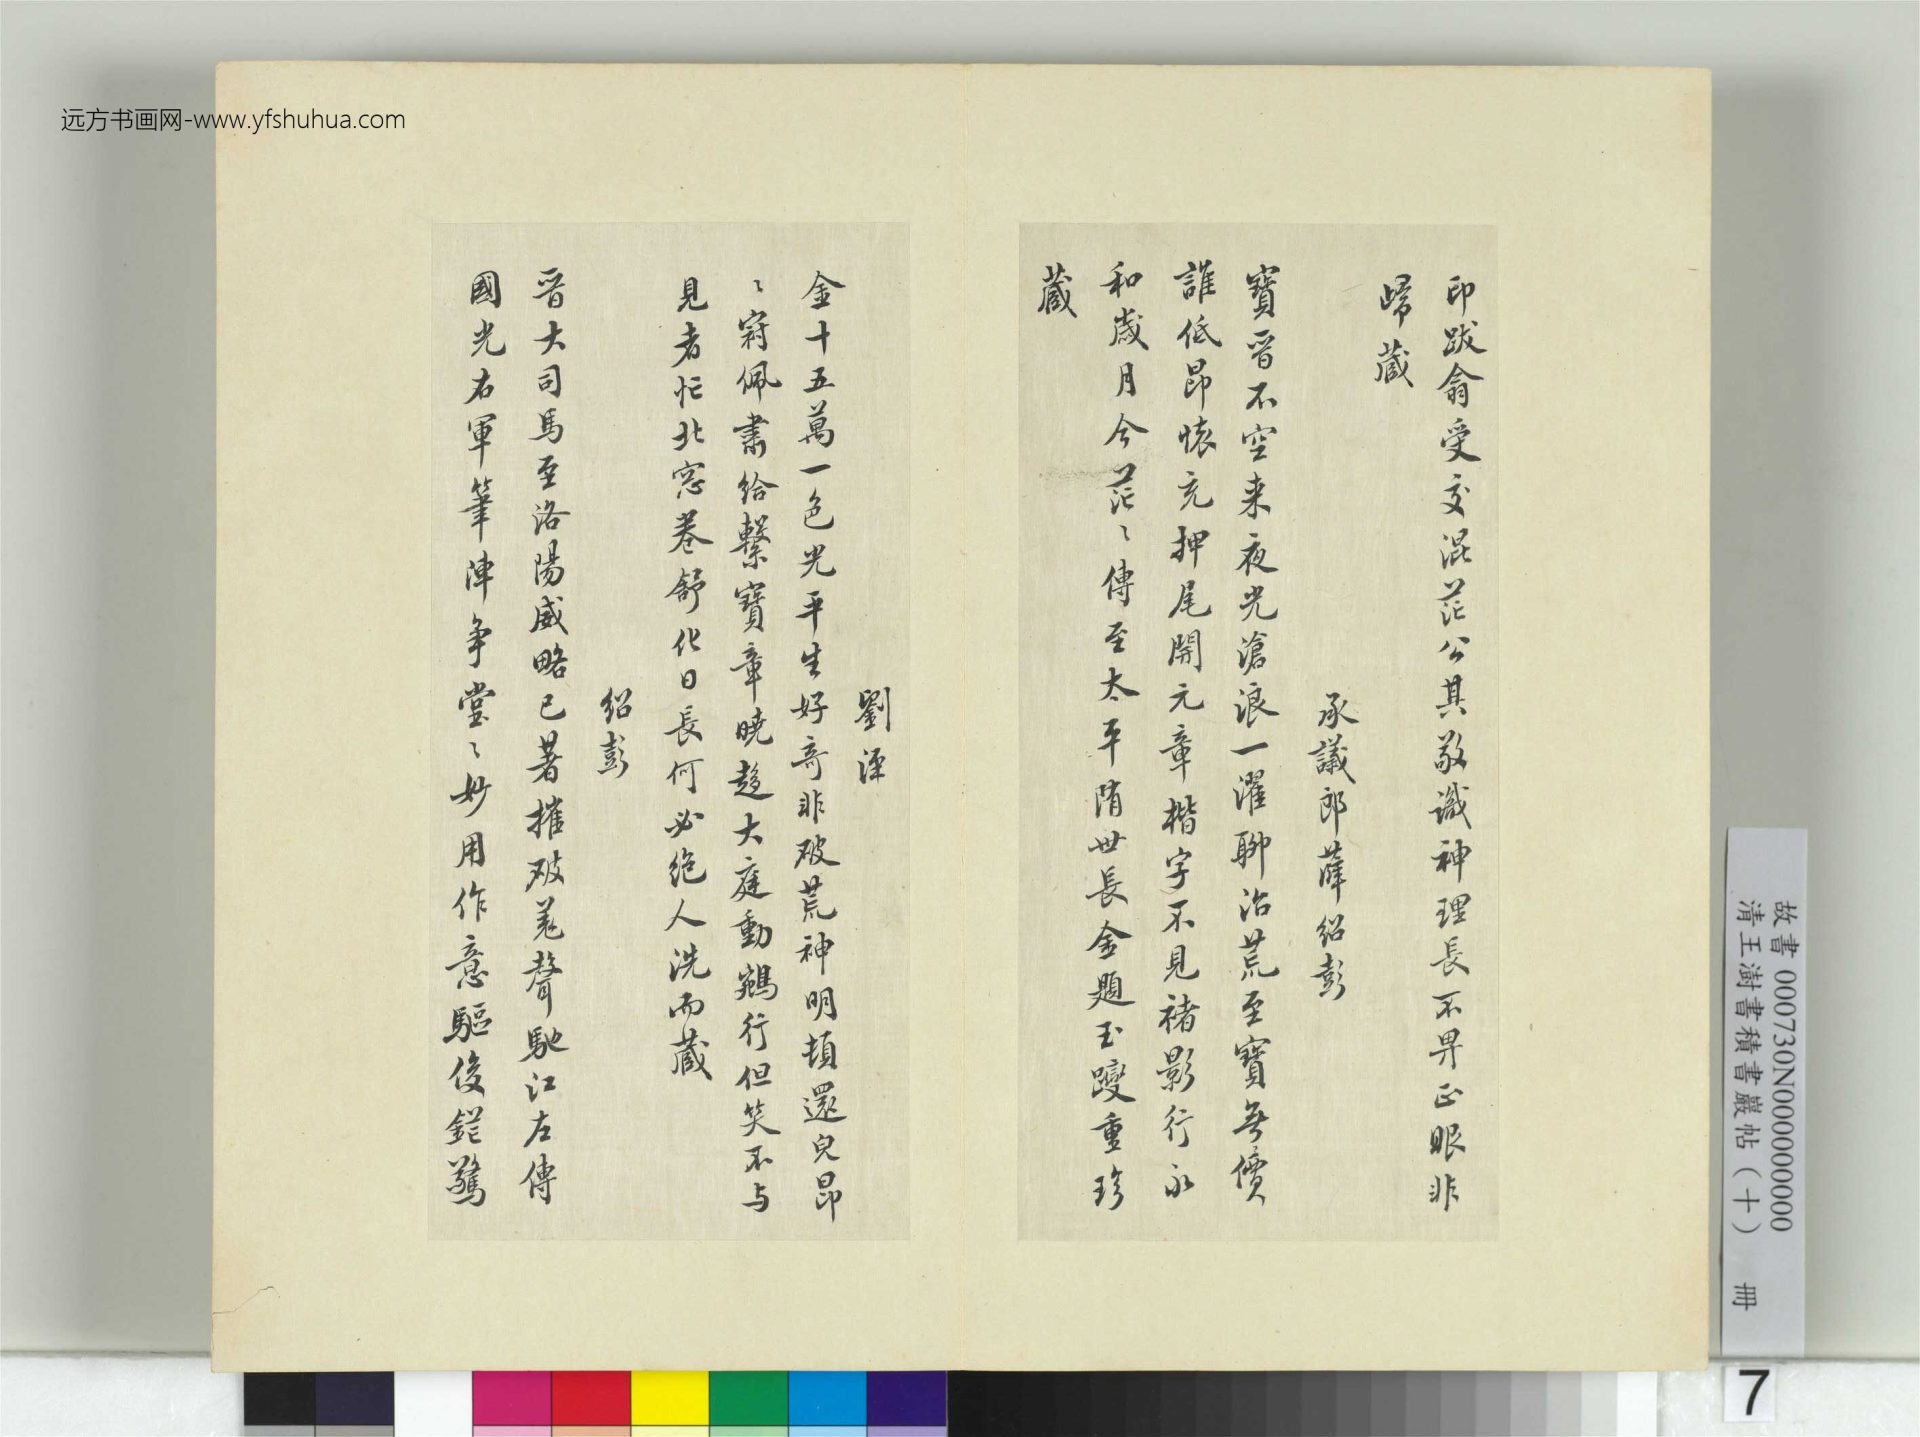 远方书画网-www.yfshuhua.com
印跋翕受交混茫公其敬識神理長不畀正眼非
歸藏
承議郎薛紹彭
寶晉不空来夜光滄浪一濯聊治荒至寶無價
誰低昂懷充押尾開元章楷字不見褚影行永
和歲月今茫〻傳至太平隋世長金題玉躞重珍
藏
劉涇
金十五萬一色光平生好奇非破荒神明頓還皃昂
〻冠佩書給繫寶章曉趨大庭動鵷行但笑不与
見者忙北窓卷舒化日長何必絶人洗而藏
紹彭
晉大司馬至洛陽威略已著摧破羌聲馳江左傳
國光右軍筆陣爭堂〻妙用作意驅俊鋩驚
故書 000730N000000000
清王澍書積書巖帖（十） 冊
7